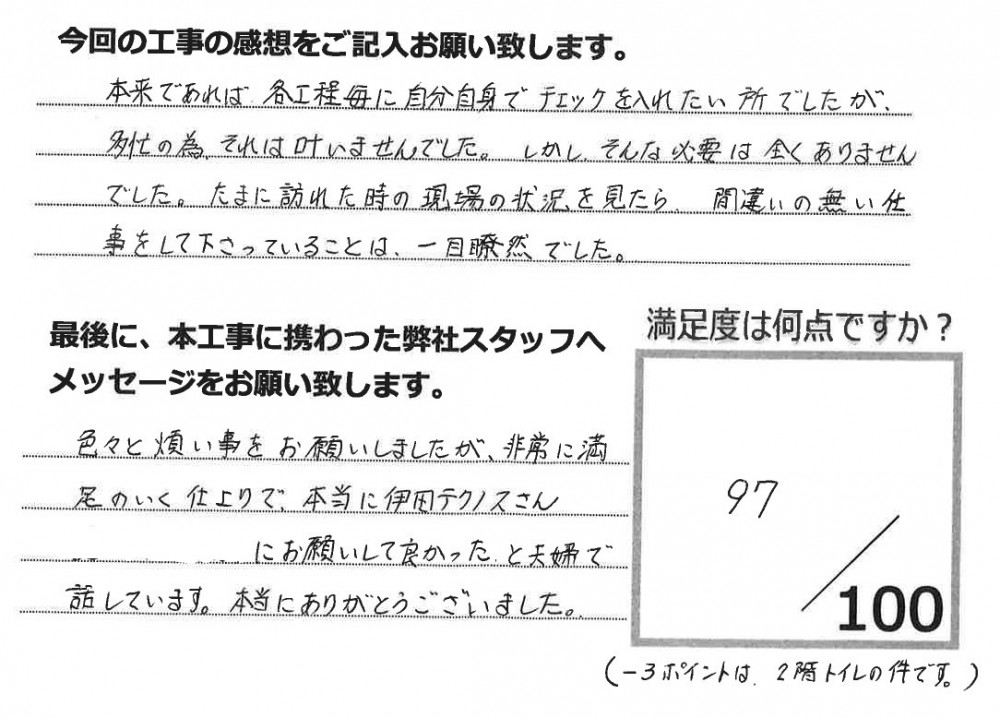 今回の工事の感想をご記入お願い致します。
本来であれば、各工程毎に自分自身でチェックを入れたい所でしたが、
多忙の為、それは叶いませんでした。しかし、そんな必要は全くありません
でした。たまに訪れた時の現場の状況を見たら、間違いの無い仕
事をして下さっていることは、一目瞭然でした。
最後に、本工事に携わった弊社スタッフへ
メッセージをお願い致します。
色々と煩い事をお願いしましたが、非常に満
足のいく仕上りで、本当に伊田テクノスさん
にお願いして良かった、と夫婦で
話しています。本当にありがとうございました。
満足度は何点ですか？
97
/100
(-3ポイントは、2階トイレの件です。)